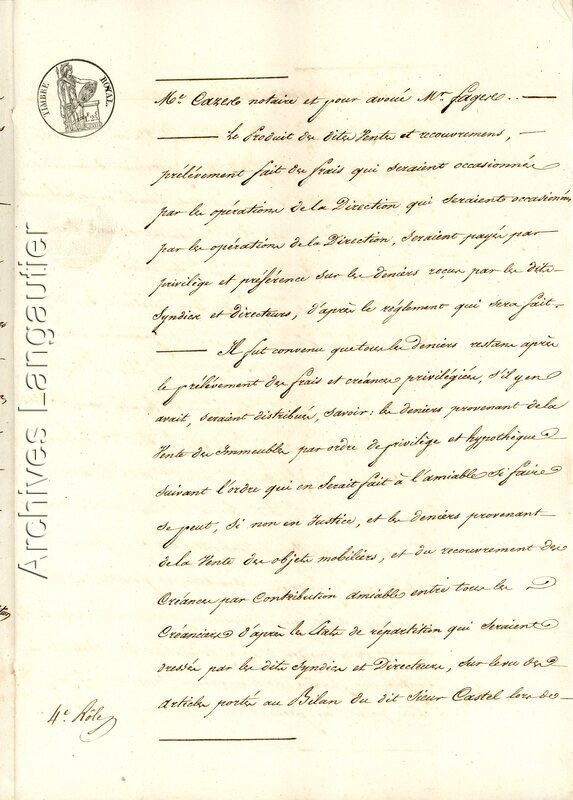 TIMBRE ROYAL
Me. Cazes notaire et pour avoué Mr. Lages.
Le Produit des dites Ventes et recouvremens,
prélévement fait des frais qui seraient occasionnés
par les opérations de la Direction qui seraient occasionnés
par les opérations de la Direction, seraient payés par
privilège et préférence sur les deniers reçus par les dits
Syndics et directeurs, d'après le réglement qui sera fait.
Il fut convenu que tous les deniers restans après
le prélévement des frais et créances privilégiées, s'il y en
avait, seraient distribués, savoir: les deniers provenant de la
Vente des Immeubles par ordre de privilège et hypothèque
suivant l'ordre qui en serait fait à l'amiable si faire
se peut, si non en Justice, et les deniers provenant
de la Vente des objets mobiliers, et du recouvrement des
Créances par Contribution amiable entre tous les
Créanciers d'après les états de répartition qui seraient
dressés par les dits Syndics et Directeurs, sur le vu des
articles portés au Bilan du dit Sieur Castel lors de
4e. Rôle
Archives Langautier